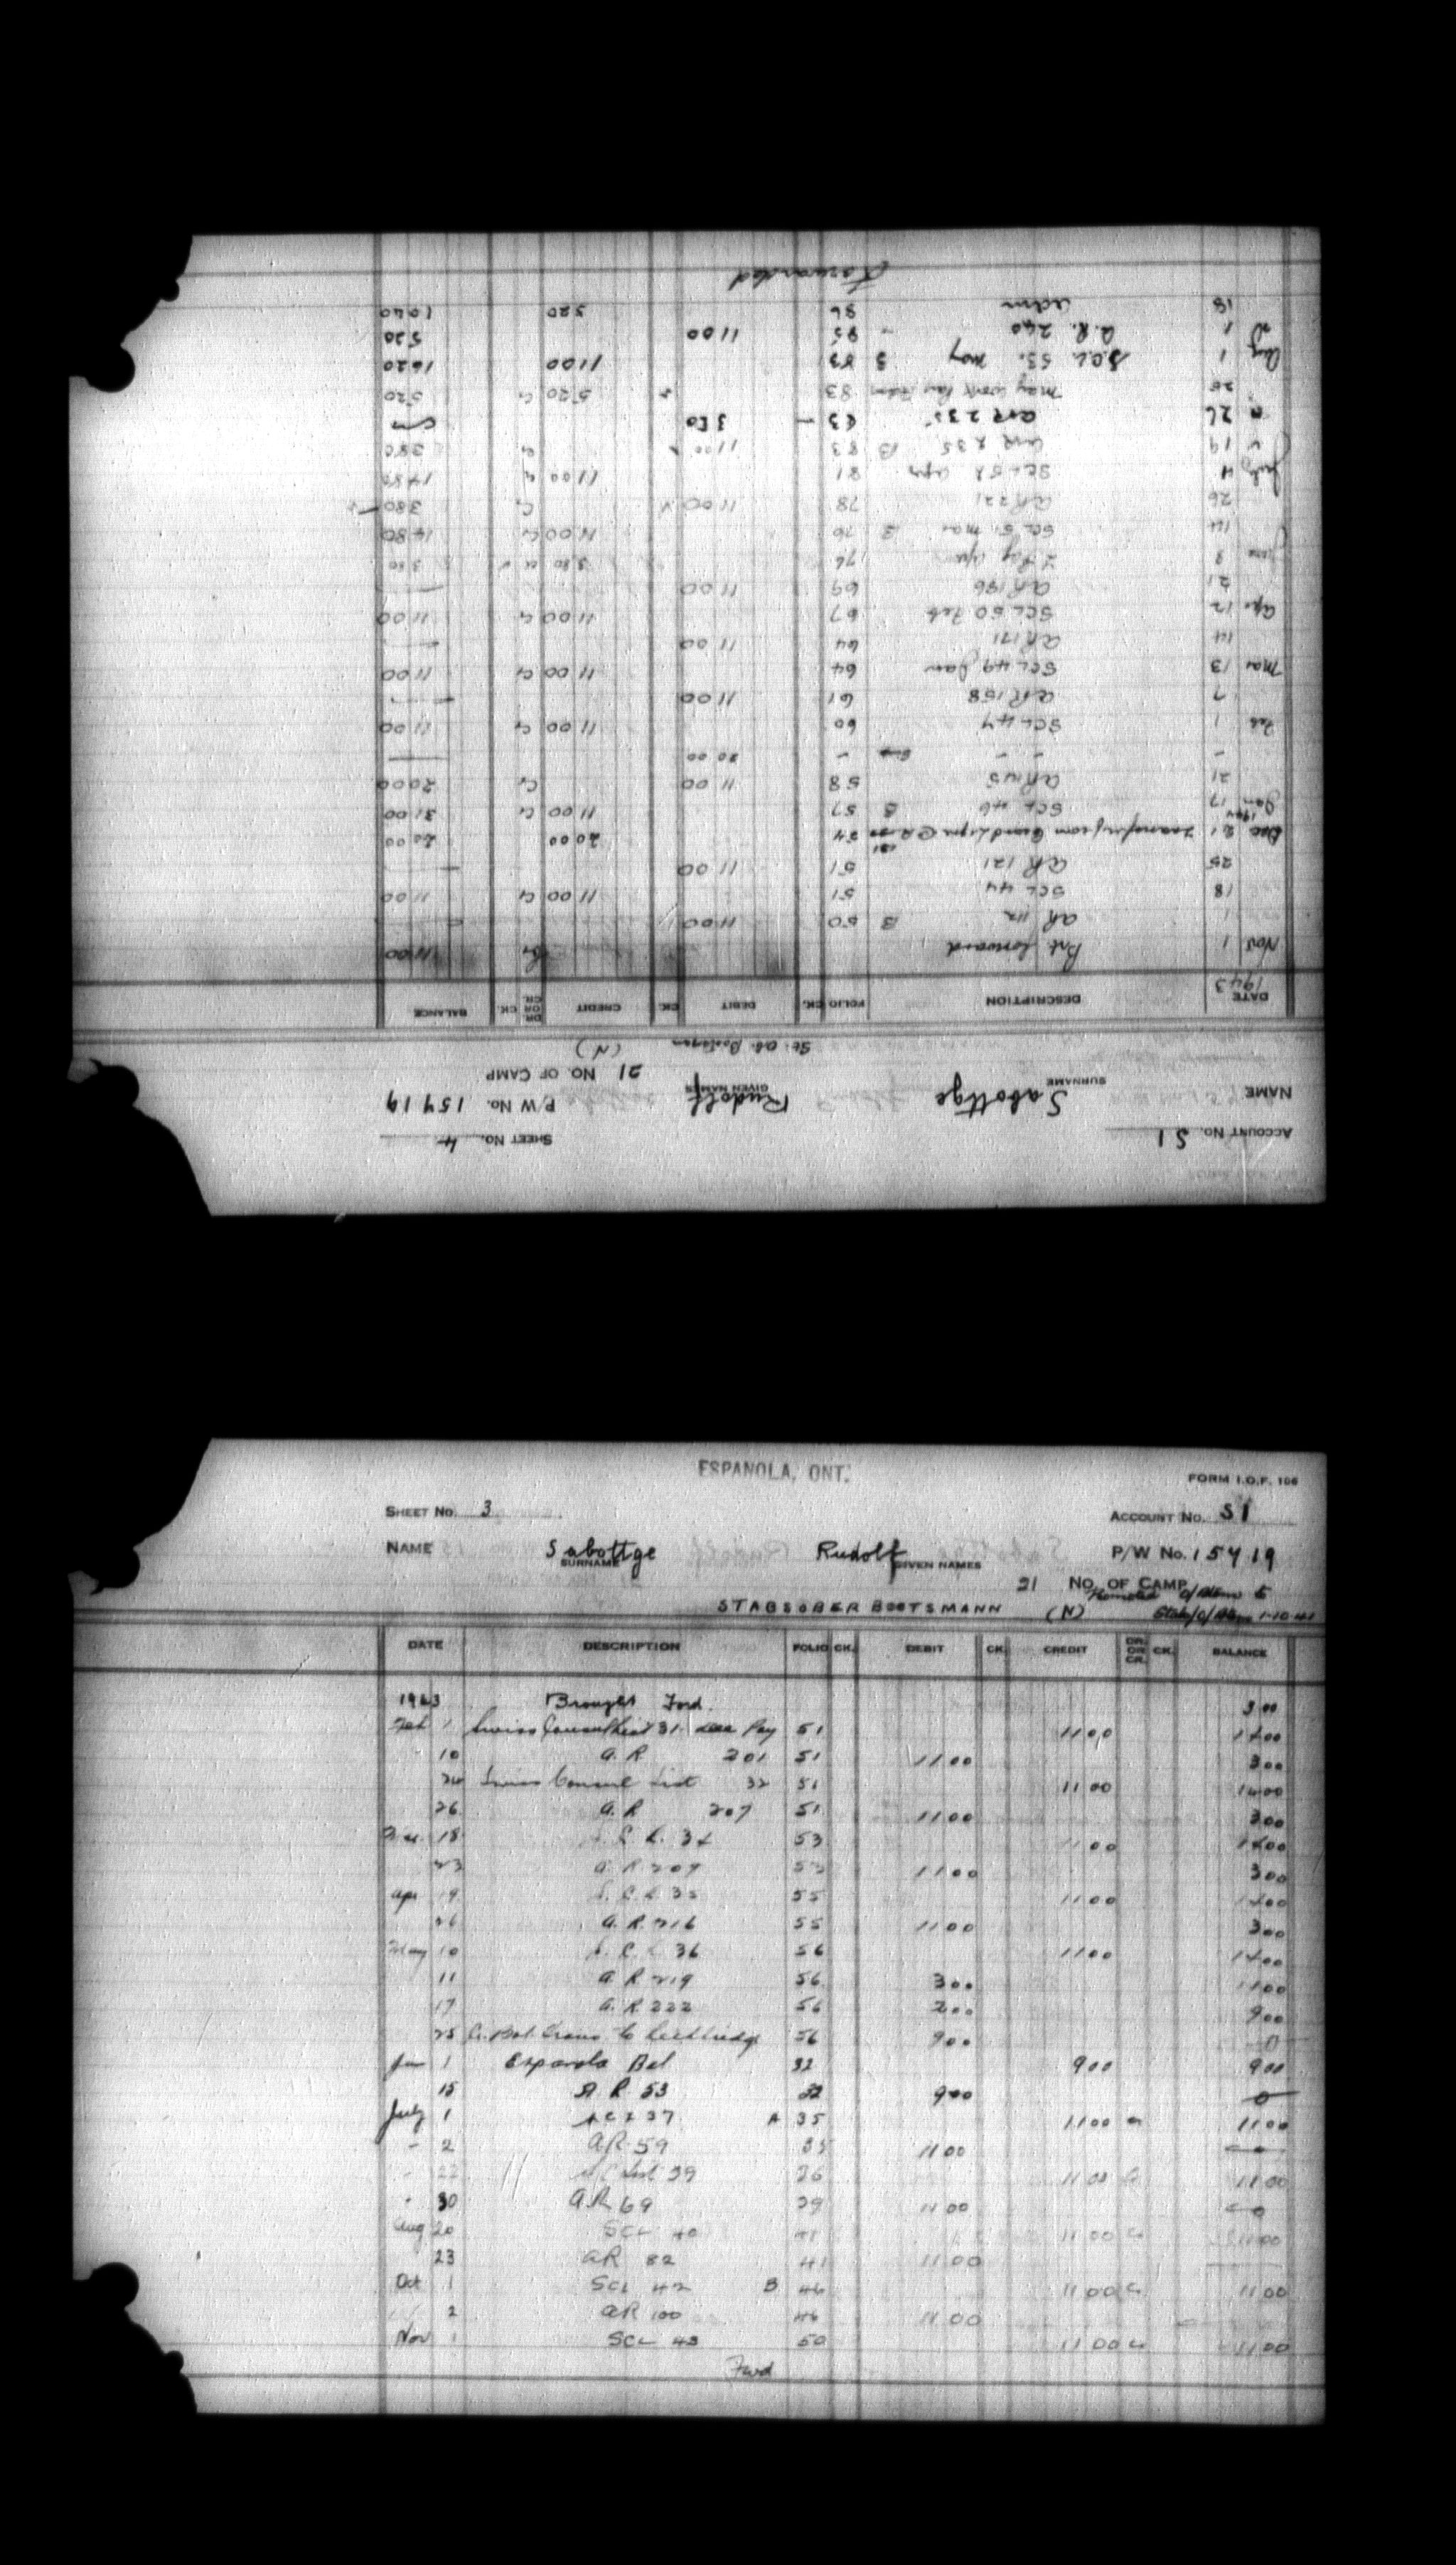 ACCOUNT No. S1 SHEET No. 4
NAME Sabottge SURNAME Rudolf GIVEN NAMES P/W No. 15419
21 No. OF CAMP
St. Ob. Bootsman (N)
DATE DESCRIPTION FOLIO CK. DEBIT CK. CREDIT DR. OR CR. CK. BALANCE
1943
Nov 1 Brt forward 11 00
1 AR 112 B 50 11 00
18 SCL 44 51 11 00 Cr 11 00
25 AR 121 51 11 00
Dec 21 Transfer from Grand Ligne 54 20 00 20 00
1944
Jan 17 SCL 46 B 57 11 00 Cr 31 00
21 AR 145 58 11 00 Cr 20 00
- - - - 20 00
Feb 1 SCL 47 60 11 00 Cr 11 00
7 AR 158 61 11 00
Mar 13 SCL 49 Jan 64 11 00 Cr 11 00
14 AR 171 64 11 00
Apr 12 SCL 50 Feb 67 11 00 Cr 11 00
21 AR 186 69 11 00
June 9 Pay 76 3 80 Cr 3 80
14 SCL 51 Mar B 76 11 00 Cr 14 80
26 AR 221 78 11 00 Cr 3 80
July 4 SCL 52 Apr 81 11 00 Cr 14 80
" 19 AR 235 B 83 11 00 Cr 3 80
" 26 AR 235 83 3 80
26 May work Pay Adm 83 5 20 Cr 5 20
Aug 1 S.C.L. 53. May B 83 11 00 16 20
" 1 A.R. 240 85 11 00 5 20
18 Adm 86 5 20 10 40
Forwarded
ESPANOLA, ONT.
FORM I.O.F. 106
SHEET No. 3 ACCOUNT No. S1
NAME Sabottge SURNAME Rudolf GIVEN NAMES P/W No. 15419
21 No. OF CAMP
Promoted
STABSOBER BOOTSMANN (N) 1-10-41
DATE DESCRIPTION FOLIO CK. DEBIT CK. CREDIT DR. OR CR. CK. BALANCE
1943 Brought Ford. 3 00
Feb 1 Swiss Consul List 31 Dec Pay 51 11 00 14 00
10 A.R. 201 51 11 00 3 00
24 Swiss Consul List 32 51 11 00 14 00
26 A.R 207 51 11 00 3 00
Mar 18 S.C.L. 34 53 11 00 14 00
23 A.R. 209 53 11 00 3 00
Apr 19 S.C.L 35 55 11 00 14 00
26 A.R. 216 55 11 00 3 00
May 10 S.C.L 36 56 11 00 14 00
11 A.R. 219 56 3 00 11 00
17 A.R. 222 56 2 00 9 00
25 Cr. Bal. trans to Lethbridge 56 9 00 0
Jun 1 Espanola Bal 32 9 00 9 00
15 A R 53 32 9 00 0
July 1 SCL 37 A 35 11 00 Cr 11 00
- 2 AR 59 35 11 00
22 S/C List 39 36 11 00 Cr 11 00
30 AR 69 39 11 00 0
Aug 20 SCL 40 41 11 00 Cr 11 00
23 AR 82 41 11 00
Oct 1 SCL 42 B 46 11 00 Cr 11 00
2 AR 100 46 11 00
Nov 1 SCL 43 50 11 00 Cr 11 00
Fwd